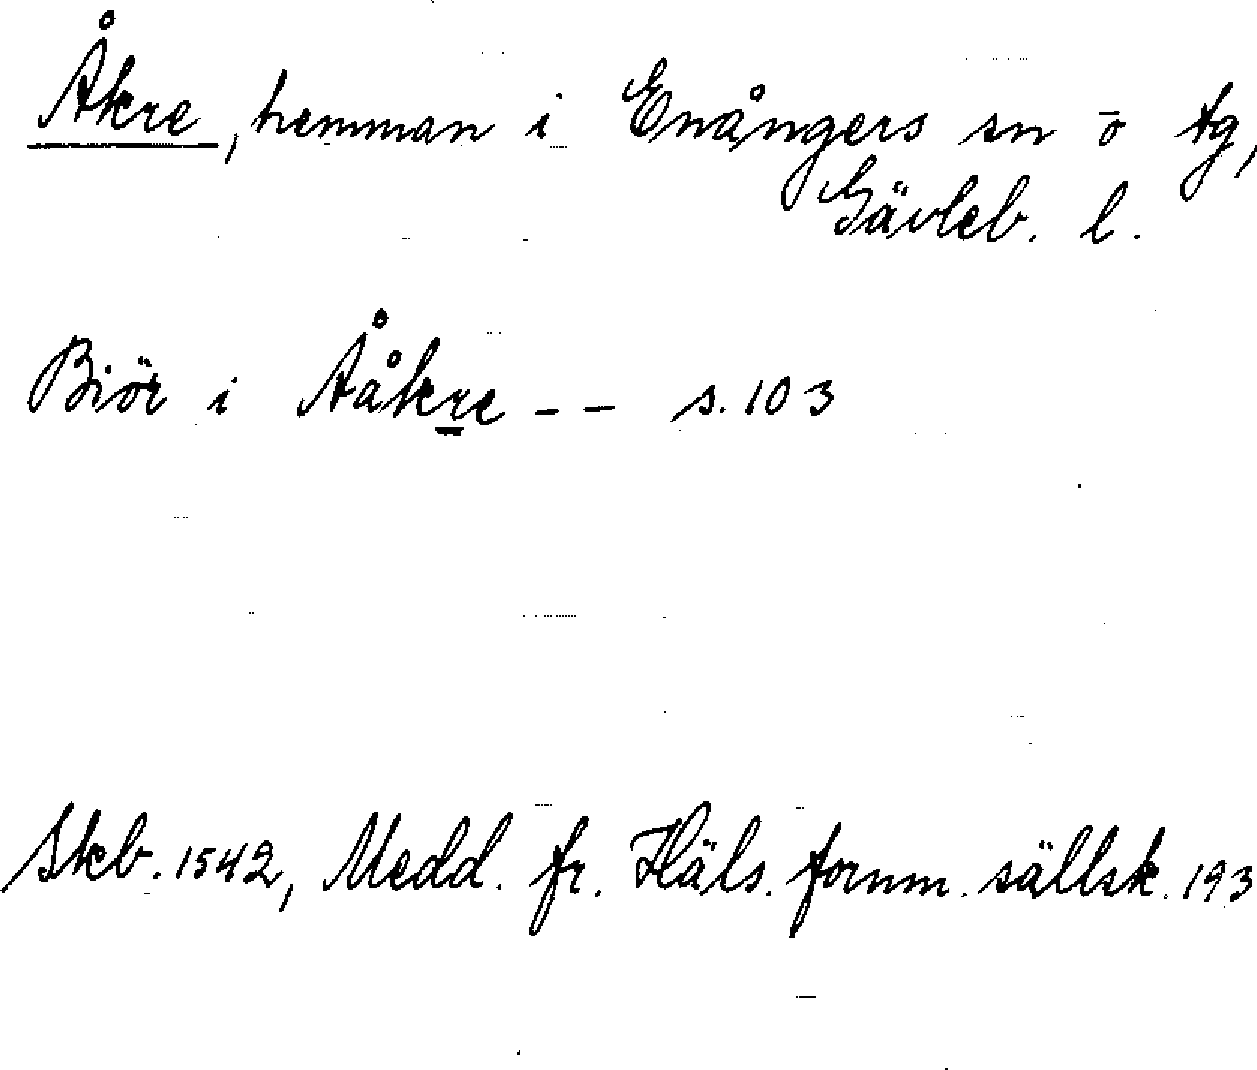 Åkre, hemman i Enångers sn o tg,
Gävleb. l.
Biör i Ååkre - - s. 103
Skb. 1542, Medd. fr. Häls. fornm. sällsk. 193